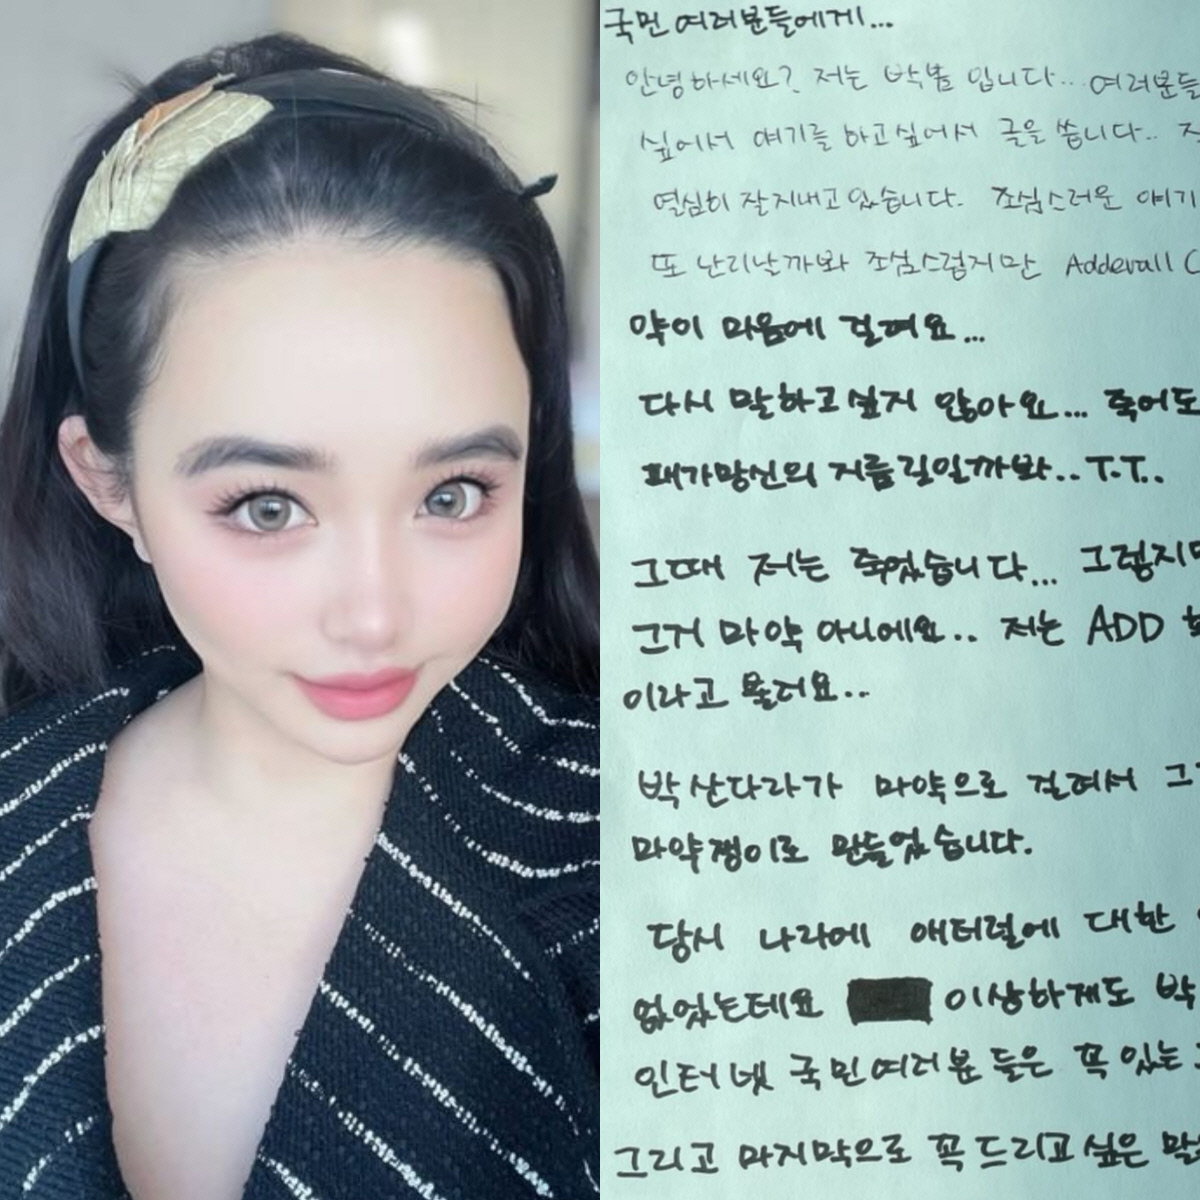 국민 여러분들에게...
안녕하세요? 저는 박봄 입니다... 여러분들
싶어서 얘기를 하고싶어서 글을 씁니다..
열심히 잘지내고있습니다. 조심스러운 얘기
또 난리날까봐 조심스럽지만 Adderall
약이 마음에 걸려요...
다시 말하고싶지 않아요... 죽어도
패가망신의 지름길일까봐.. T.T..
그때 저는 죽었습니다... 그렇지만
그거 마약 아니에요.. 저는 ADD
이라고 불려요..
박산다라가 마약으로 걸려서 그
마약쟁이로 만들었습니다.
당시 나라에 애터럴에 대한
없었는데요 이상하게도 박
인터넷 국민여러분 들은 꼭 있는
그리고 마지막으로 꼭드리고싶은 말